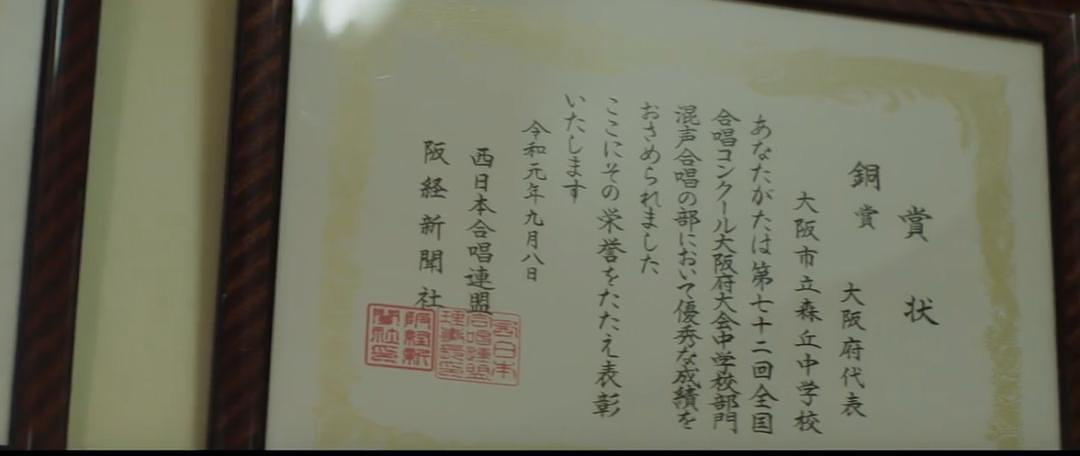 賞状
銅賞　大阪府代表
大阪市立森丘中学校
あなたがたは第七十二回全国
合唱コンクール大阪府大会中学校部門
混声合唱の部において優秀な成績を
おさめられました
ここにその栄誉をたたえ表彰
いたします
令和元年九月八日
西日本合唱連盟
阪経新聞社